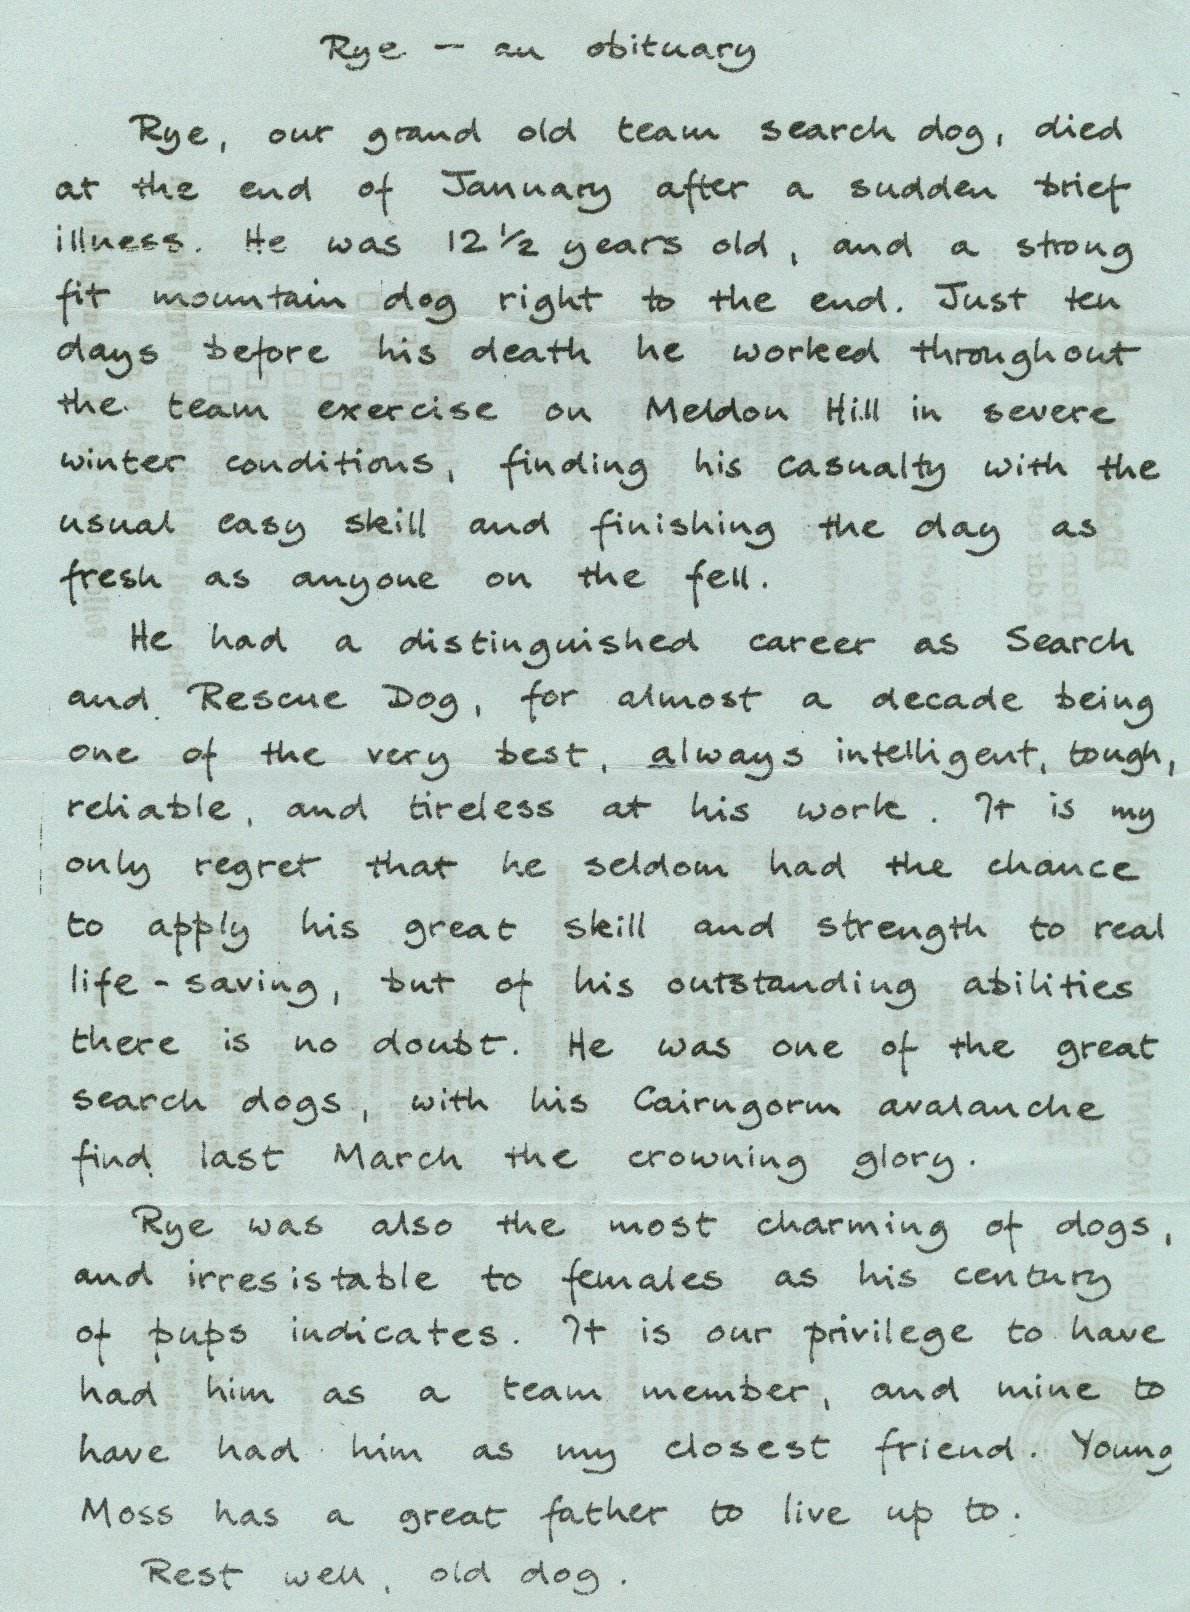 Rye — an obituary
Rye, our grand old team search dog, died
at the end of January after a sudden brief
illness. He was 12½ years old, and a strong
fit mountain dog right to the end. Just ten
days before his death he worked throughout
the team exercise on Meldon Hill in severe
winter conditions, finding his casualty with the
usual easy skill and finishing the day as
fresh as anyone on the fell.
He had a distinguished career as Search
and Rescue Dog, for almost a decade being
one of the very best, always intelligent, tough,
reliable, and tireless at his work. It is my
only regret that he seldom had the chance
to apply his great skill and strength to real
life-saving, but of his outstanding abilities
there is no doubt. He was one of the great
search dogs, with his Cairngorm avalanche
find last March the crowning glory.
Rye was also the most charming of dogs,
and irresistable to females as his century
of pups indicates. It is our privilege to have
had him as a team member, and mine to
have had him as my closest friend. Young
Moss has a great father to live up to.
Rest well, old dog.